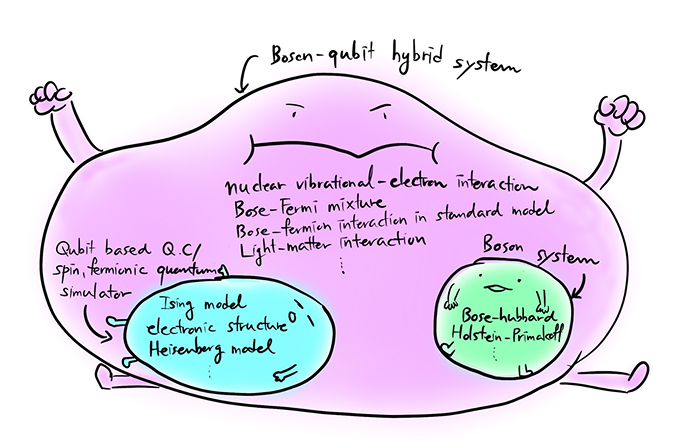 Boson-qubit hybrid system
nuclear vibrational-electron interaction
Bose-Fermi mixture
Bose-fermion interaction in standard model
Light-matter interaction
⋮
Qubit based Q.C/
spin, fermionic quantum
simulator
Ising model
electronic structure
Heisenberg model
⋮
Boson system
Bose-hubbard
Holstein-Primakoff
⋮